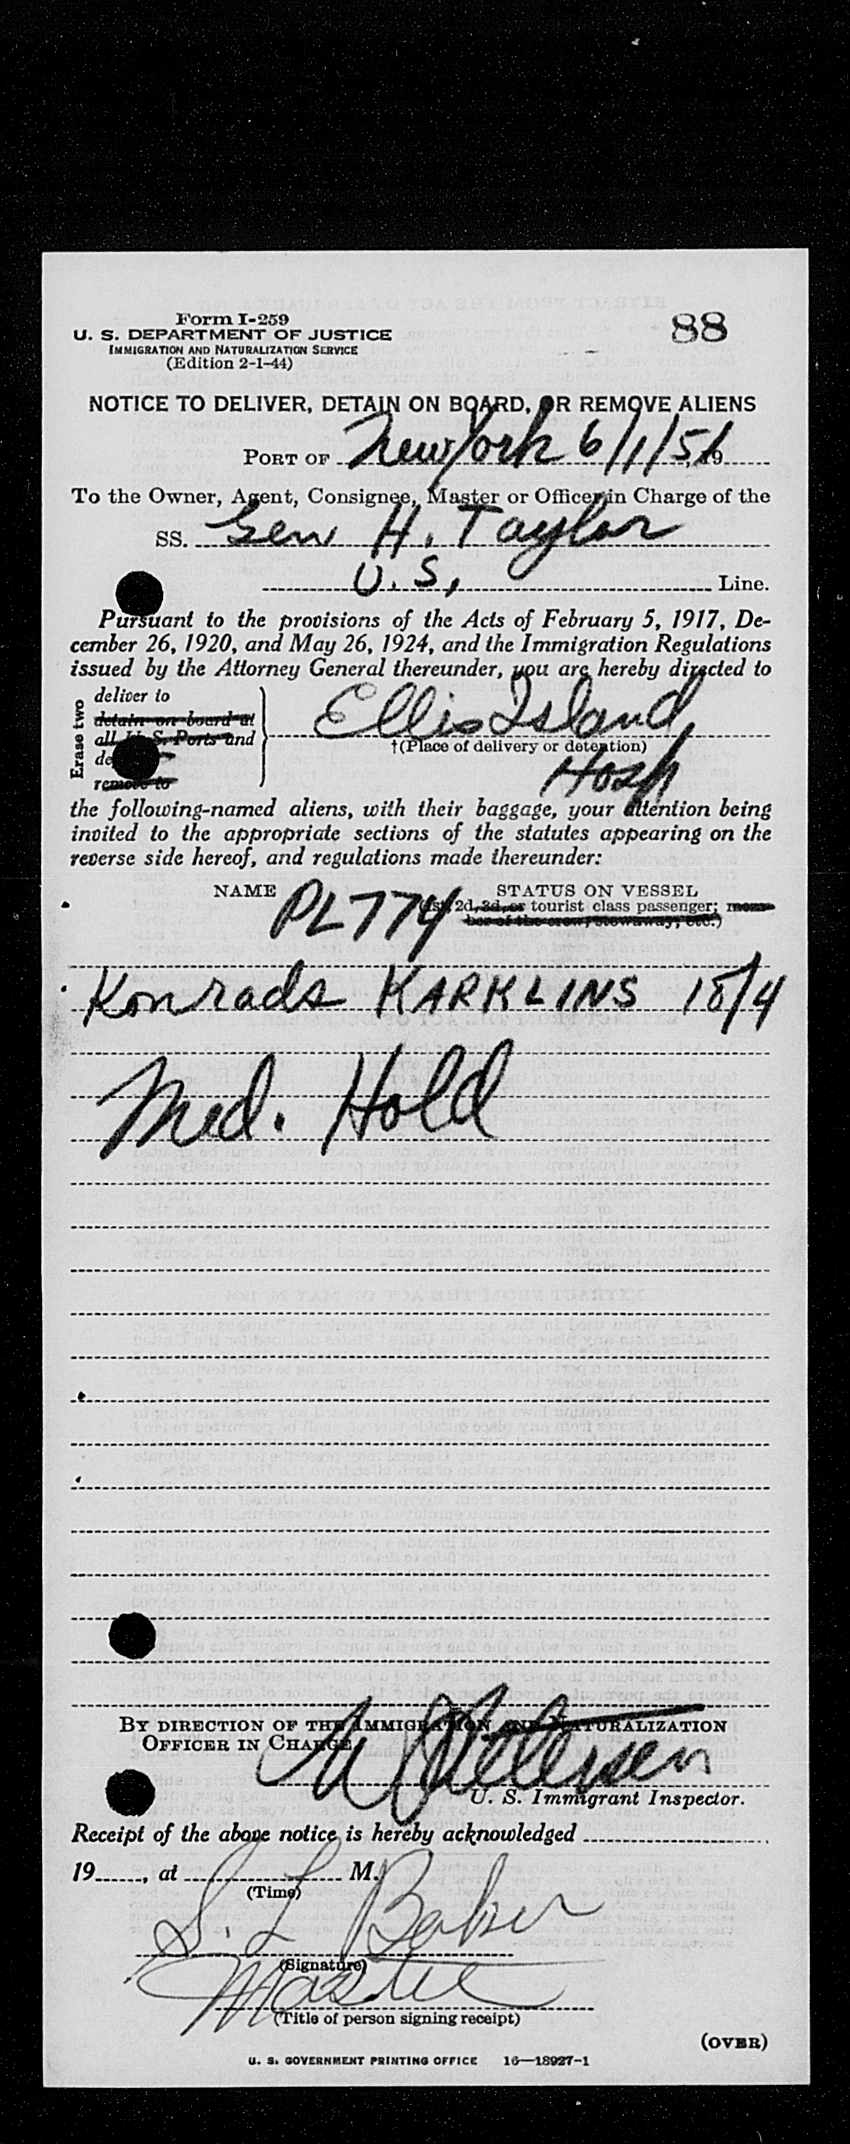 Form I-259
88
U. S. DEPARTMENT OF JUSTICE
IMMIGRATION AND NATURALIZATION SERVICE
(Edition 2-1-44)
NOTICE TO DELIVER, DETAIN ON BOARD, OR REMOVE ALIENS
PORT OF New York 6/1/51 19
To the Owner, Agent, Consignee, Master or Officer in Charge of the
SS. Gen H. Taylor
U.S. Line.
Pursuant to the provisions of the Acts of February 5, 1917, De-
cember 26, 1920, and May 26, 1924, and the Immigration Regulations
issued by the Attorney General thereunder, you are hereby directed to
Erase two
deliver to
detain on board at
all U. S. Ports and
de
remove to
Ellis Island
†(Place of delivery or detention)
Hosp
the following-named aliens, with their baggage, your attention being
invited to the appropriate sections of the statutes appearing on the
reverse side hereof, and regulations made thereunder:
NAME PL774 STATUS ON VESSEL
(1st, 2d, 3d, or tourist class passenger; mem-
ber of the crew, stowaway, etc.)
Konrads KARKLINS 18/4
Med. Hold
BY DIRECTION OF THE IMMIGRATION AND NATURALIZATION
OFFICER IN CHARGE
Petersen
U. S. Immigrant Inspector.
Receipt of the above notice is hereby acknowledged
19, at M.
(Time)
S. L Baker
(Signature)
Master
(Title of person signing receipt)
(OVER)
U. S. GOVERNMENT PRINTING OFFICE 16—18927-1